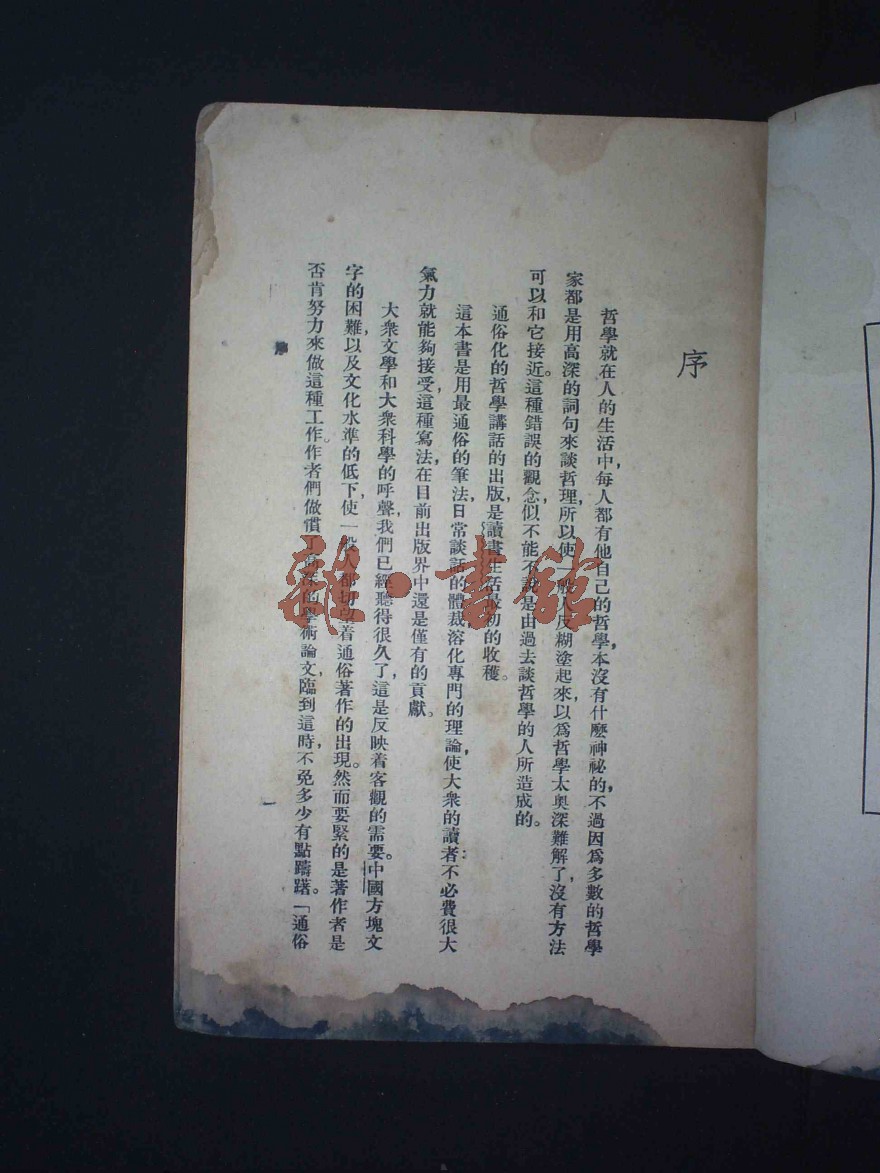 序
哲學就在人的生活中,每人都有他自己的哲學,本沒有什麽神祕的,不過因爲多數的哲學
家都是用高深的詞句來談哲理,所以使一般人反糊塗起來,以爲哲學太奧深難解了,沒有方法
可以和它接近。這種錯誤的觀念,似不能不說是由過去談哲學的人所造成的。
通俗化的哲學講話的出版,是讀書生活最初的收穫。
這本書是用最通俗的筆法,日常談話的體裁,溶化專門的理論,使大衆的讀者不必費很大
氣力就能夠接受,這種寫法,在目前出版界中還是僅有的貢獻。
大衆文學和大衆科學的呼聲,我們已經聽得很久了,這是反映着客觀的需要。中國方塊文
字的困難,以及文化水準的低下,使一般都切望着通俗著作的出現。然而要緊的是著作者是
否肯努力來做這種工作。作者們做慣了高深的學術論文,臨到這時,不免多少有點躊躇。「通俗
序
一
雜·書館